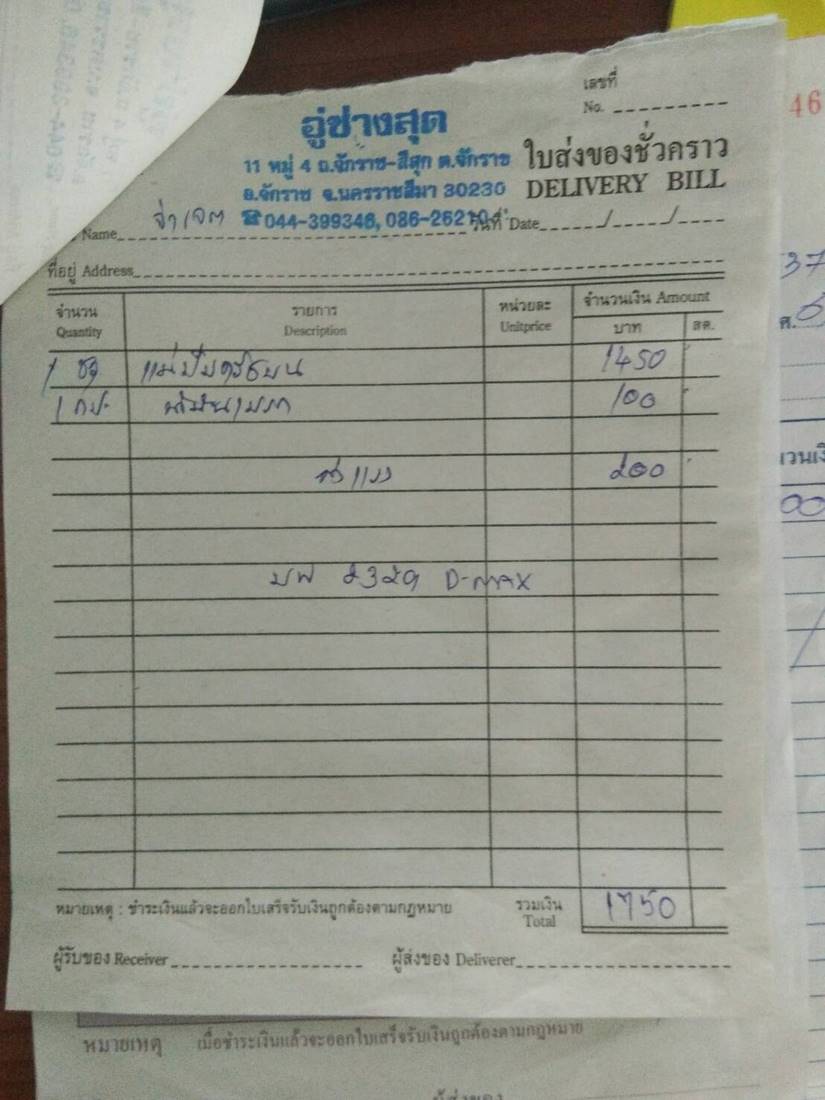 เลขที่
No.
46
อู่ช่างสุด
11 หมู่ 4 ถ.จักราช-สีสุก ต.จักราช
อ.จักราช จ.นครราชสีมา 30230
☎044-399346, 086-26210
ใบส่งของชั่วคราว
DELIVERY BILL
Name จ่าเจต วันที่ Date / /
ที่อยู่ Address
จำนวน รายการ หน่วยละ จำนวนเงิน Amount
Quantity Description Unitprice บาท สต.
1 ชุด แม่ปั๊มครัชบน 1450
1 กป. น้ำมันเบรก 100
ค่าแรง 200
บพ 2329 D-MAX
หมายเหตุ : ชำระเงินแล้วจะออกใบเสร็จรับเงินถูกต้องตามกฎหมาย รวมเงิน 1750
Total
ผู้รับของ Receiver ผู้ส่งของ Deliverer
หมายเหตุ เมื่อชำระเงินแล้วจะออกใบเสร็จรับเงินถูกต้องตามกฎหมาย
ผู้ส่งของ
37
00